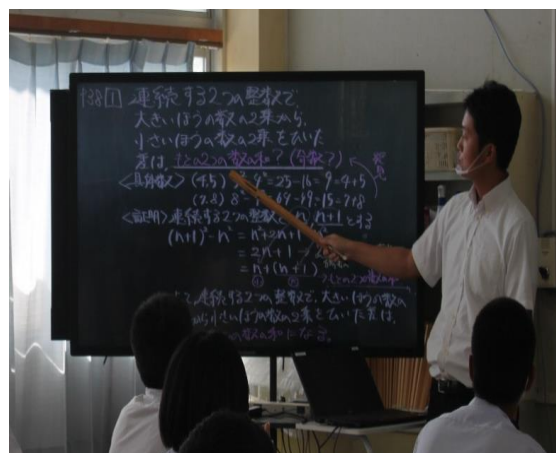 P38 1 連続する2つの整数で、
大きいほうの数の2乗から、
小さいほうの数の2乗をひいた
差は、もとの2つの数の和？(奇数？)
〈具体数〉(4,5) 5²-4²=25-16=9=4+5
(7,8) 8²-7²=64-49=15=7+8
〈証明〉連続する2つの整数を n, n+1 とする
(n+1)²-n²=n²+2n+1
=2n+1
=n+(n+1)
連続する2つの整数で、大きいほうの数の
から小さいほうの数の2乗をひいた差は、
の数の和になる。